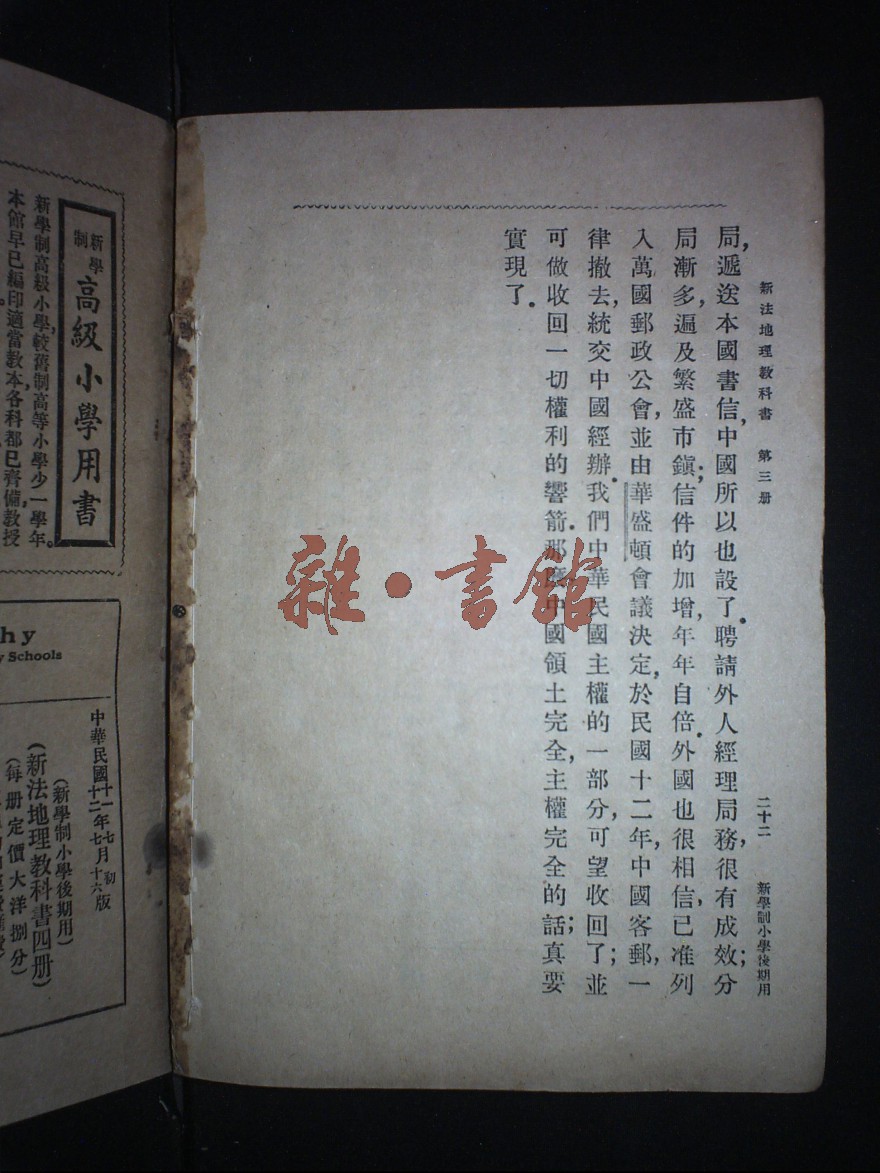 新法地理教科書 第三册 二十二 新學制小學後期用
局,遞送本國書信,中國所以也設了.聘請外人經理局務,很有成效;分
局漸多,遍及繁盛市鎮;信件的加增,年年自倍.外國也很相信,已准列
入萬國郵政公會,並由華盛頓會議決定,於民國十二年,中國客郵,一
律撤去,統交中國經辦.我們中華民國主權的一部分,可望收回了;並
可做收回一切權利的響箭.那麼中國領土完全,主權完全的話;真要
實現了.
雜·書館
新學制
高級小學用書
新學制高級小學,較舊制高等小學少一學年。
本館早已編印適當教本,各科都已齊備,教授
hy
y Schools
中華民國十一年七月初版
十二年七月十六版
(新學制小學後期用)
(新法地理教科書四册)
(每册定價大洋捌分)